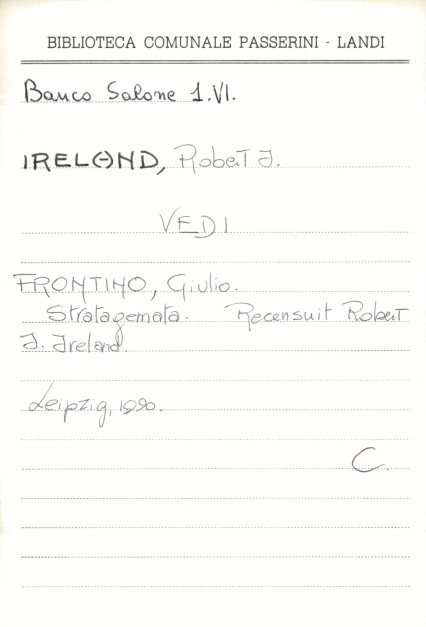 BIBLIOTECA COMUNALE PASSERINI - LANDI
Banco Salone 1.VI.
IRELAND, Robert J.
VEDI
FRONTINO, Giulio.
Stratagemata. Recensuit Robert
J. Ireland.
Leipzig, 1990.
C.